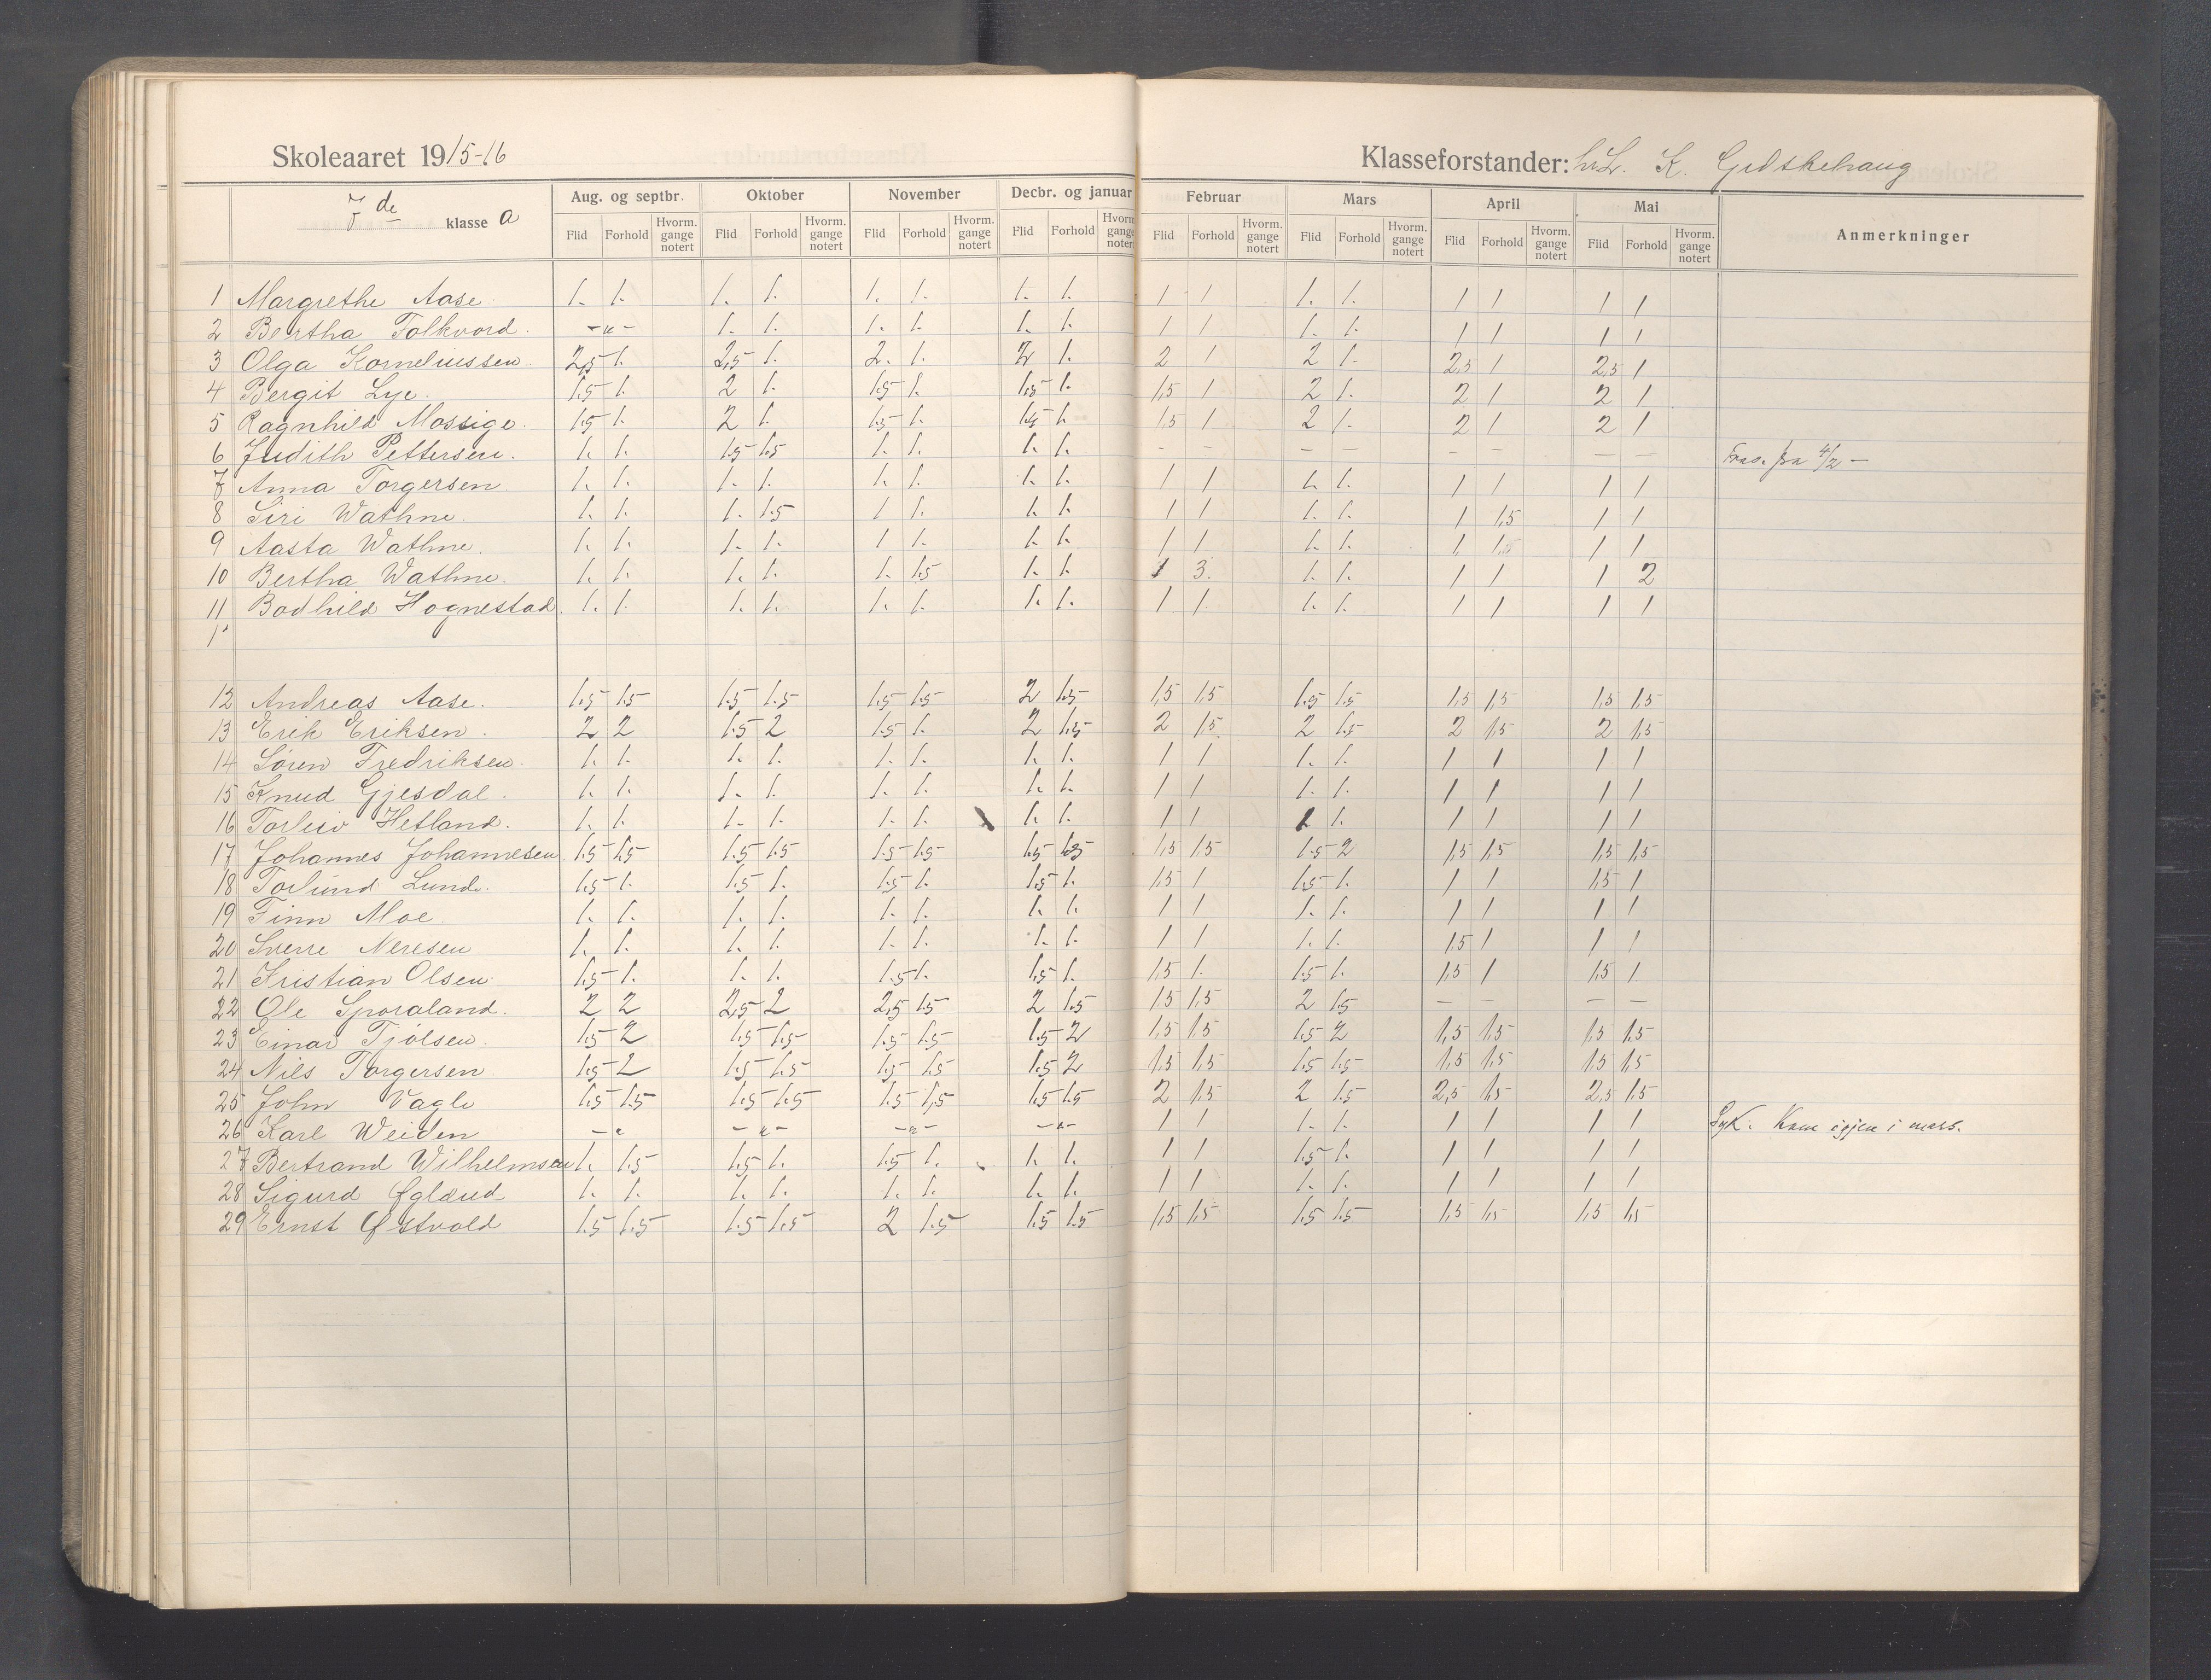 Skoleaaret 1915-16
Klasseforstander: K. Gidskehaug
7de klasse a
Aug. og septbr. Oktober November Decbr. og januar Februar Mars April Mai Anmerkninger
Flid Forhold Hvorm. gange notert Flid Forhold Hvorm. gange notert Flid Forhold Hvorm. gange notert Flid Forhold Hvorm. gange notert Flid Forhold Hvorm. gange notert Flid Forhold Hvorm. gange notert Flid Forhold Hvorm. gange notert Flid Forhold Hvorm. gange notert
1 Margrethe Aase 1. 1. 1. 1. 1. 1. 1. 1. 1 1 1. 1. 1 1 1 1
2 Bertha Folkvord. -"- 1. 1. 1. 1. 1. 1. 1 1 1. 1. 1 1 1 1
3 Olga Korneliussen 2,5 1. 2,5 1. 2. 1. 2 1. 2 1 2 1. 2,5 1 2,5 1
4 Bergit Lye. 1.5 1. 2 1. 1.5 1. 1.5 1. 1,5 1 2 1. 2 1 2 1
5 Ragnhild Mossige. 1.5 1. 2 1. 1.5 1. 1.5 1. 1,5 1 2 1. 2 1 2 1
6 Judith Pettersen. 1. 1. 1.5 1.5 1. 1. 1. 1. - - - - - - - - fra 4/2 -
7 Anna Torgersen 1. 1. 1. 1. 1. 1. 1. 1. 1 1 1. 1. 1 1 1 1
8 Siri Wathne. 1. 1. 1. 1.5 1 1. 1. 1. 1 1 1. 1. 1 1,5 1 1
9 Aasta Wathne. 1. 1. 1. 1. 1 1. 1. 1. 1 1 1. 1. 1 1,5 1 1
10 Bertha Wathne. 1. 1. 1. 1. 1. 1.5 1. 1. 1 3. 1. 1. 1 1 1 2
11 Bodhild Hognestad. 1. 1. 1. 1. 1. 1. 1. 1. 1 1 1. 1. 1 1 1 1
12 Andreas Aase. 1.5 1.5 1.5 1.5 1.5 1.5 2 1.5 1,5 1,5 1.5 1.5 1,5 1,5 1,5 1,5
13 Erik Eriksen. 2 2 1.5 2 1.5 1. 2 1.5 2 1,5 2 1.5 2 1,5 2 1,5
14 Søren Fredriksen. 1. 1. 1. 1. 1. 1. 1. 1. 1 1 1. 1. 1 1 1 1
15 Knud Gjesdal. 1. 1. 1. 1. 1. 1. 1. 1. 1 1 1. 1. 1 1 1 1
16 Torleiv Hetland. 1. 1. 1. 1. 1. 1. 1. 1. 1 1 1 1. 1 1 1 1
17 Johannes Johannesen 1.5 1.5 1.5 1.5 1.5 1.5 1.5 1.5 1,5 1,5 1.5 2 1,5 1,5 1,5 1,5
18 Torlund Lunde. 1.5 1. 1.5 1. 1.5 1. 1.5 1. 1,5 1 1.5 1. 1 1 1,5 1
19 Finn Moe 1. 1. 1. 1. 1. 1. 1. 1. 1 1 1. 1. 1 1 1 1
20 Sverre Neresen 1. 1. 1. 1. 1. 1. 1. 1. 1 1 1. 1. 1,5 1 1 1
21 Kristian Olsen 1.5 1. 1. 1. 1.5 1. 1.5 1. 1,5 1. 1.5 1. 1,5 1 1,5 1
22 Ole Sporaland. 2 2 2,5 2 2,5 1.5 2 1.5 1,5 1,5 2 1.5 - - - -
23 Einar Tjølsen. 1.5 2 1.5 1.5 1.5 1.5 1.5 2 1,5 1,5 1.5 2 1,5 1,5 1,5 1,5
24 Nils Torgersen 1.5 2 1.5 1.5 1.5 1.5 1.5 2 1,5 1,5 1.5 1.5 1,5 1,5 1,5 1,5
25 John Vagle 1.5 1.5 1.5 1.5 1.5 1,5 1.5 1.5 2 1,5 2 1.5 2,5 1,5 2,5 1,5
26 Karl Weiden -"- -"- -"- -"- 1 1 1. 1. 1 1 1 1 Syk. Kom igjen i mars.
27 Bertrand Wilhelmsen 1. 1.5 1.5 1. 1.5 1. 1. 1. 1 1 1.5 1. 1 1 1 1
28 Sigurd Øglænd 1. 1. 1. 1. 1. 1. 1. 1. 1 1 1. 1. 1 1 1 1
29 Ernst Østvold 1.5 1.5 1.5 1.5 2 1.5 1.5 1.5 1,5 1,5 1.5 1.5 1,5 1,5 1,5 1,5